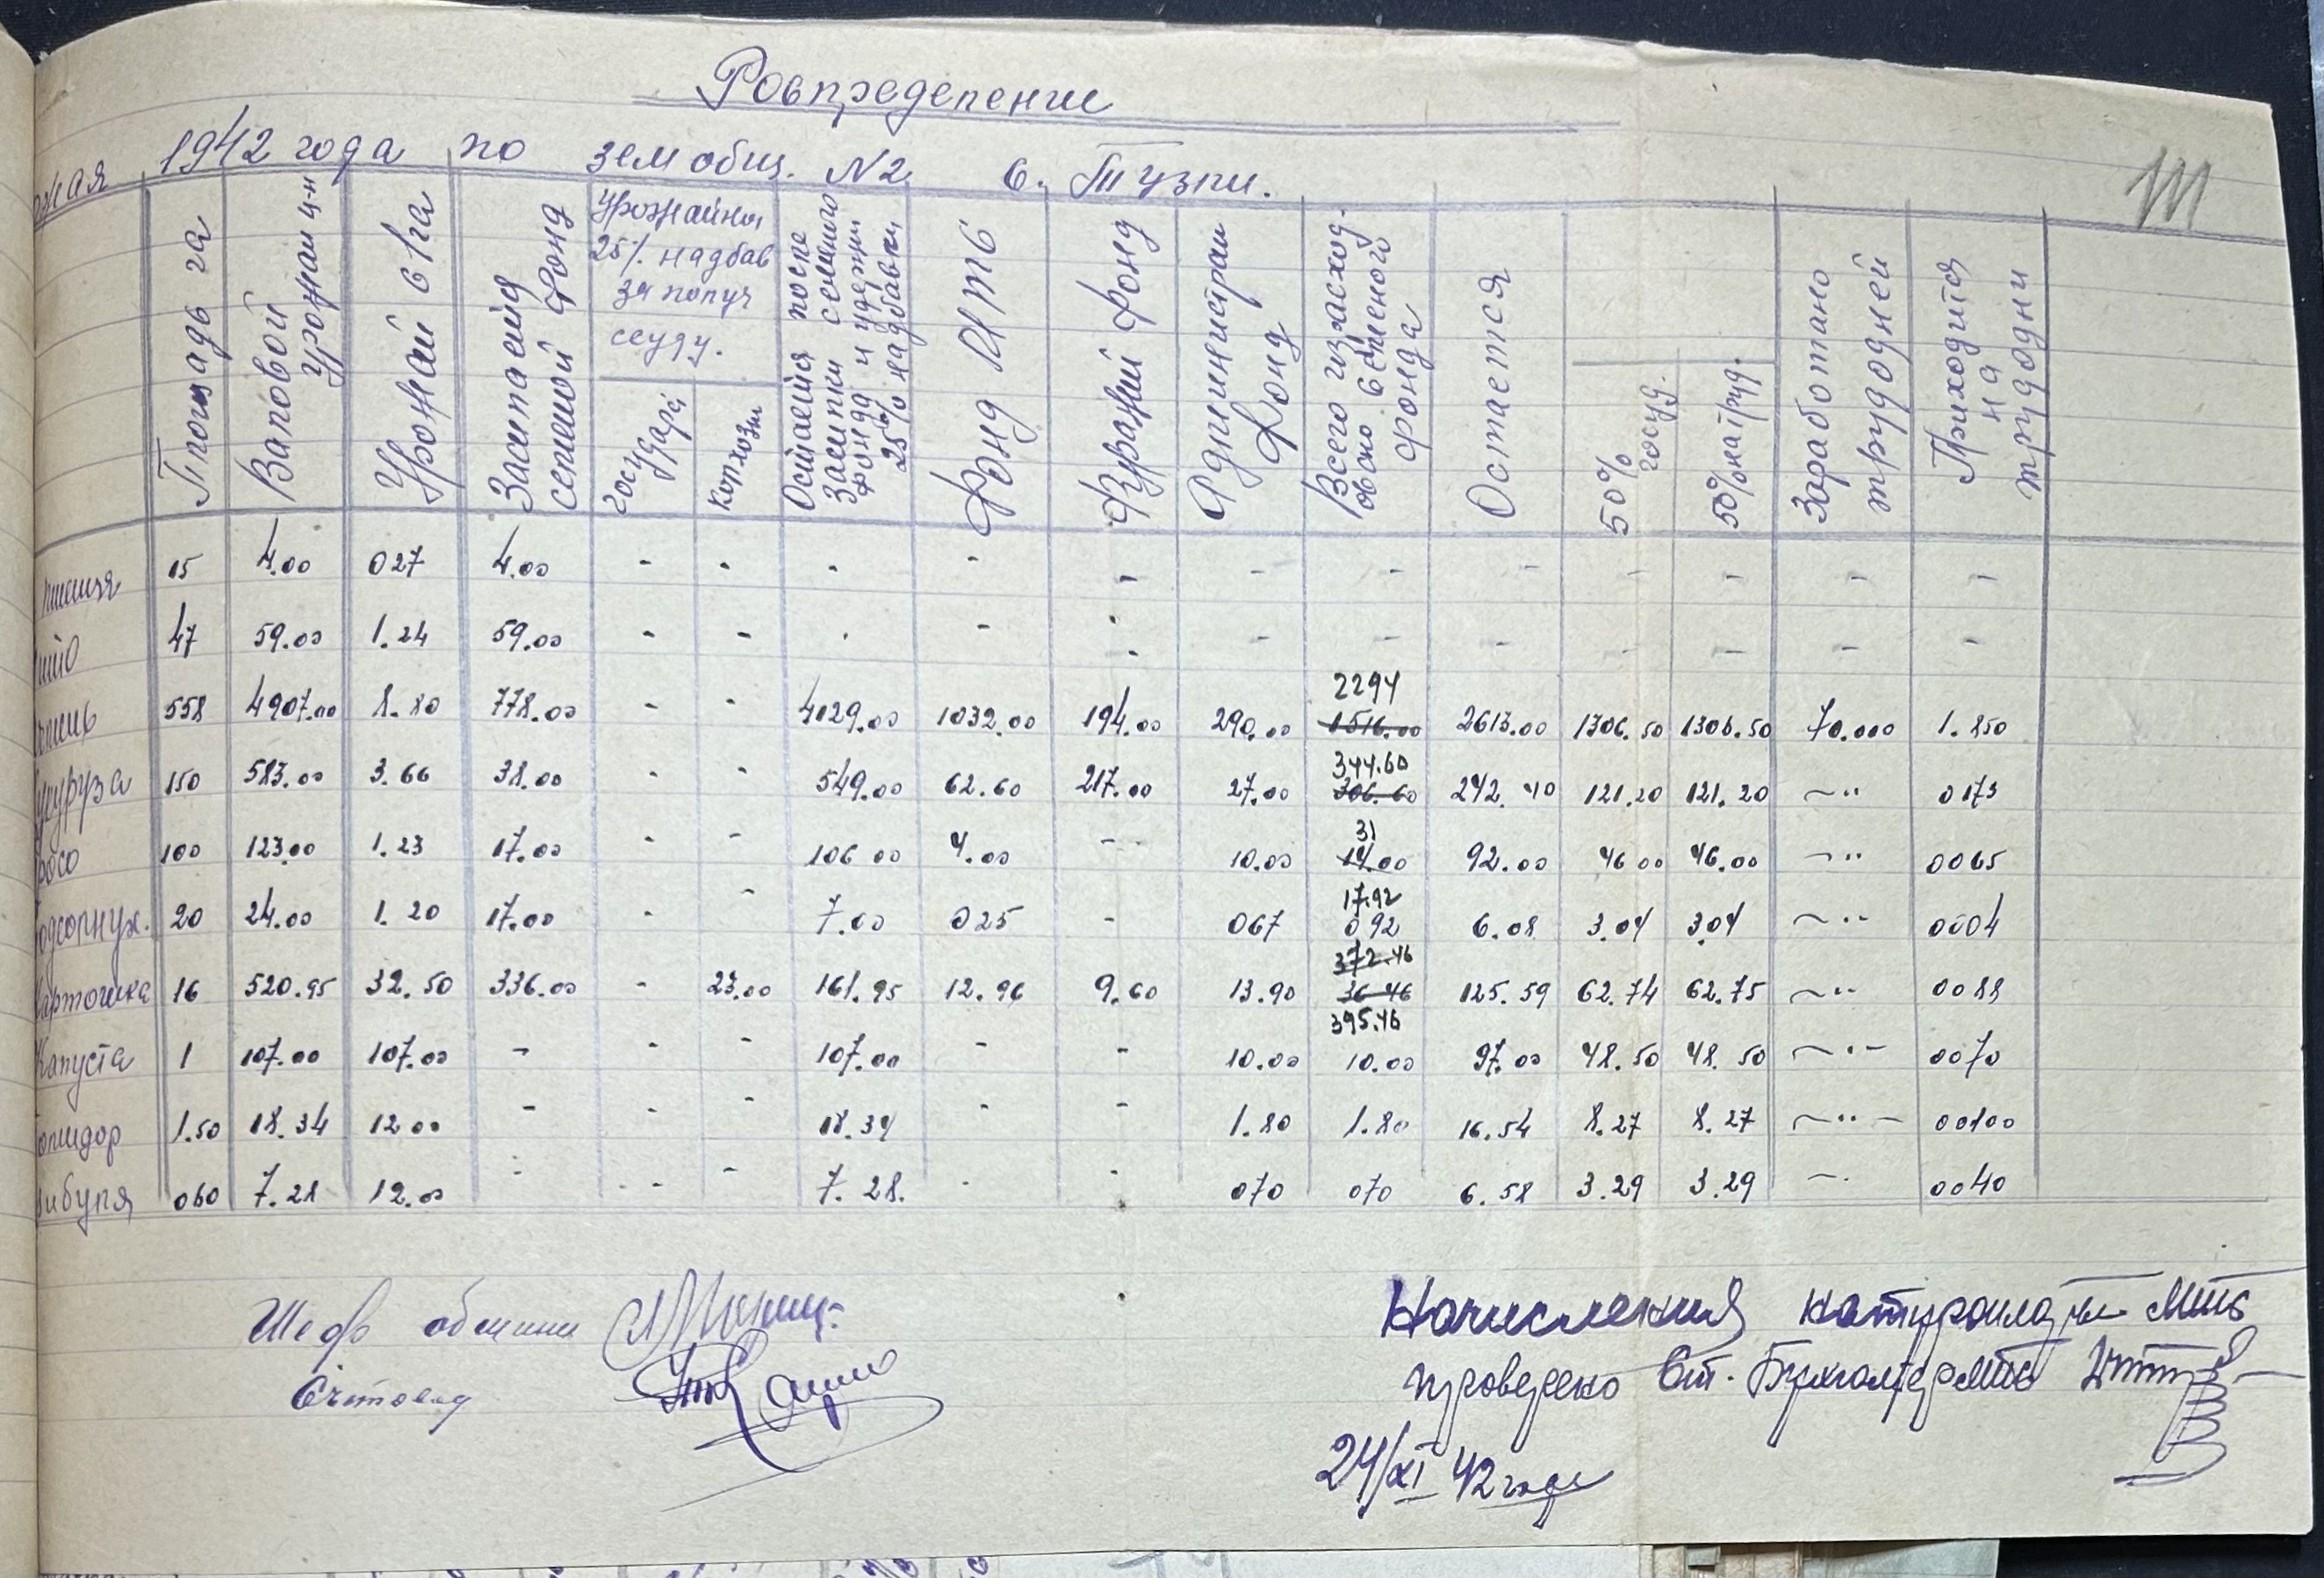 Розпределение
1942 года по земобщ. N2 с. Тузли.
Площадь га | Валовой урожай ц-н | Урожай с 1 га | Засипаейся семеной фонд | Урожайном 25% надбав за получ ссуду. | Государс | колхозы | Остаейся после Засипки семеного фонда и удержки 25% надбавки | Фонд МТС | Фуражий фонд | Администрац Фонд | Всего израсход. | Остается | 50% госуд. | 50% на труд. | Заработано трудодней | Приходится на трудодни
15 4.00 027 4.00 - - - - - - - - - - - -
47 59.00 1.24 59.00 - - - - - - - - - - - -
2294
558 4907.00 8.80 778.00 - - 4129.00 1032.00 194.00 290.00 1516.00 2613.00 1306.50 1306.50 70.000 1.850
344.60
150 583.00 3.66 38.00 - - 549.00 62.60 217.00 27.00 306.60 242.40 121.20 121.20 —"— 0173
31
100 123.00 1.23 17.00 - - 106 00 4.00 - 10.00 14.00 92.00 46 00 46.00 —"— 0065
17.92
Подсолнух. 20 24.00 1.20 17.00 - - 7.00 025 - 067 092 6.08 3.04 3.04 —"— 0004
372.46
Картошка 16 520.95 32.50 336.00 - 23.00 161.95 12.96 9.60 13.90 36 46 125.59 62.74 62.75 —"— 0088
395.46
Капуста 1 107.00 107.00 - - - 107.00 - - 10.00 10.00 97.00 48.50 48.50 —"— 0070
Помидор 1.50 18.34 12 00 - - - 18.34 - - 1.80 1.80 16.54 8.27 8.27 —"— 00100
Цибуля 060 7.28 12.00 - - - 7.28. - - 070 070 6.58 3.29 3.29 —"— 0040
Шеф общини
Счтовод
Начисления натуроплаты МТС
проверено Ст. Бухгалтер МТС
24/XI 42 года